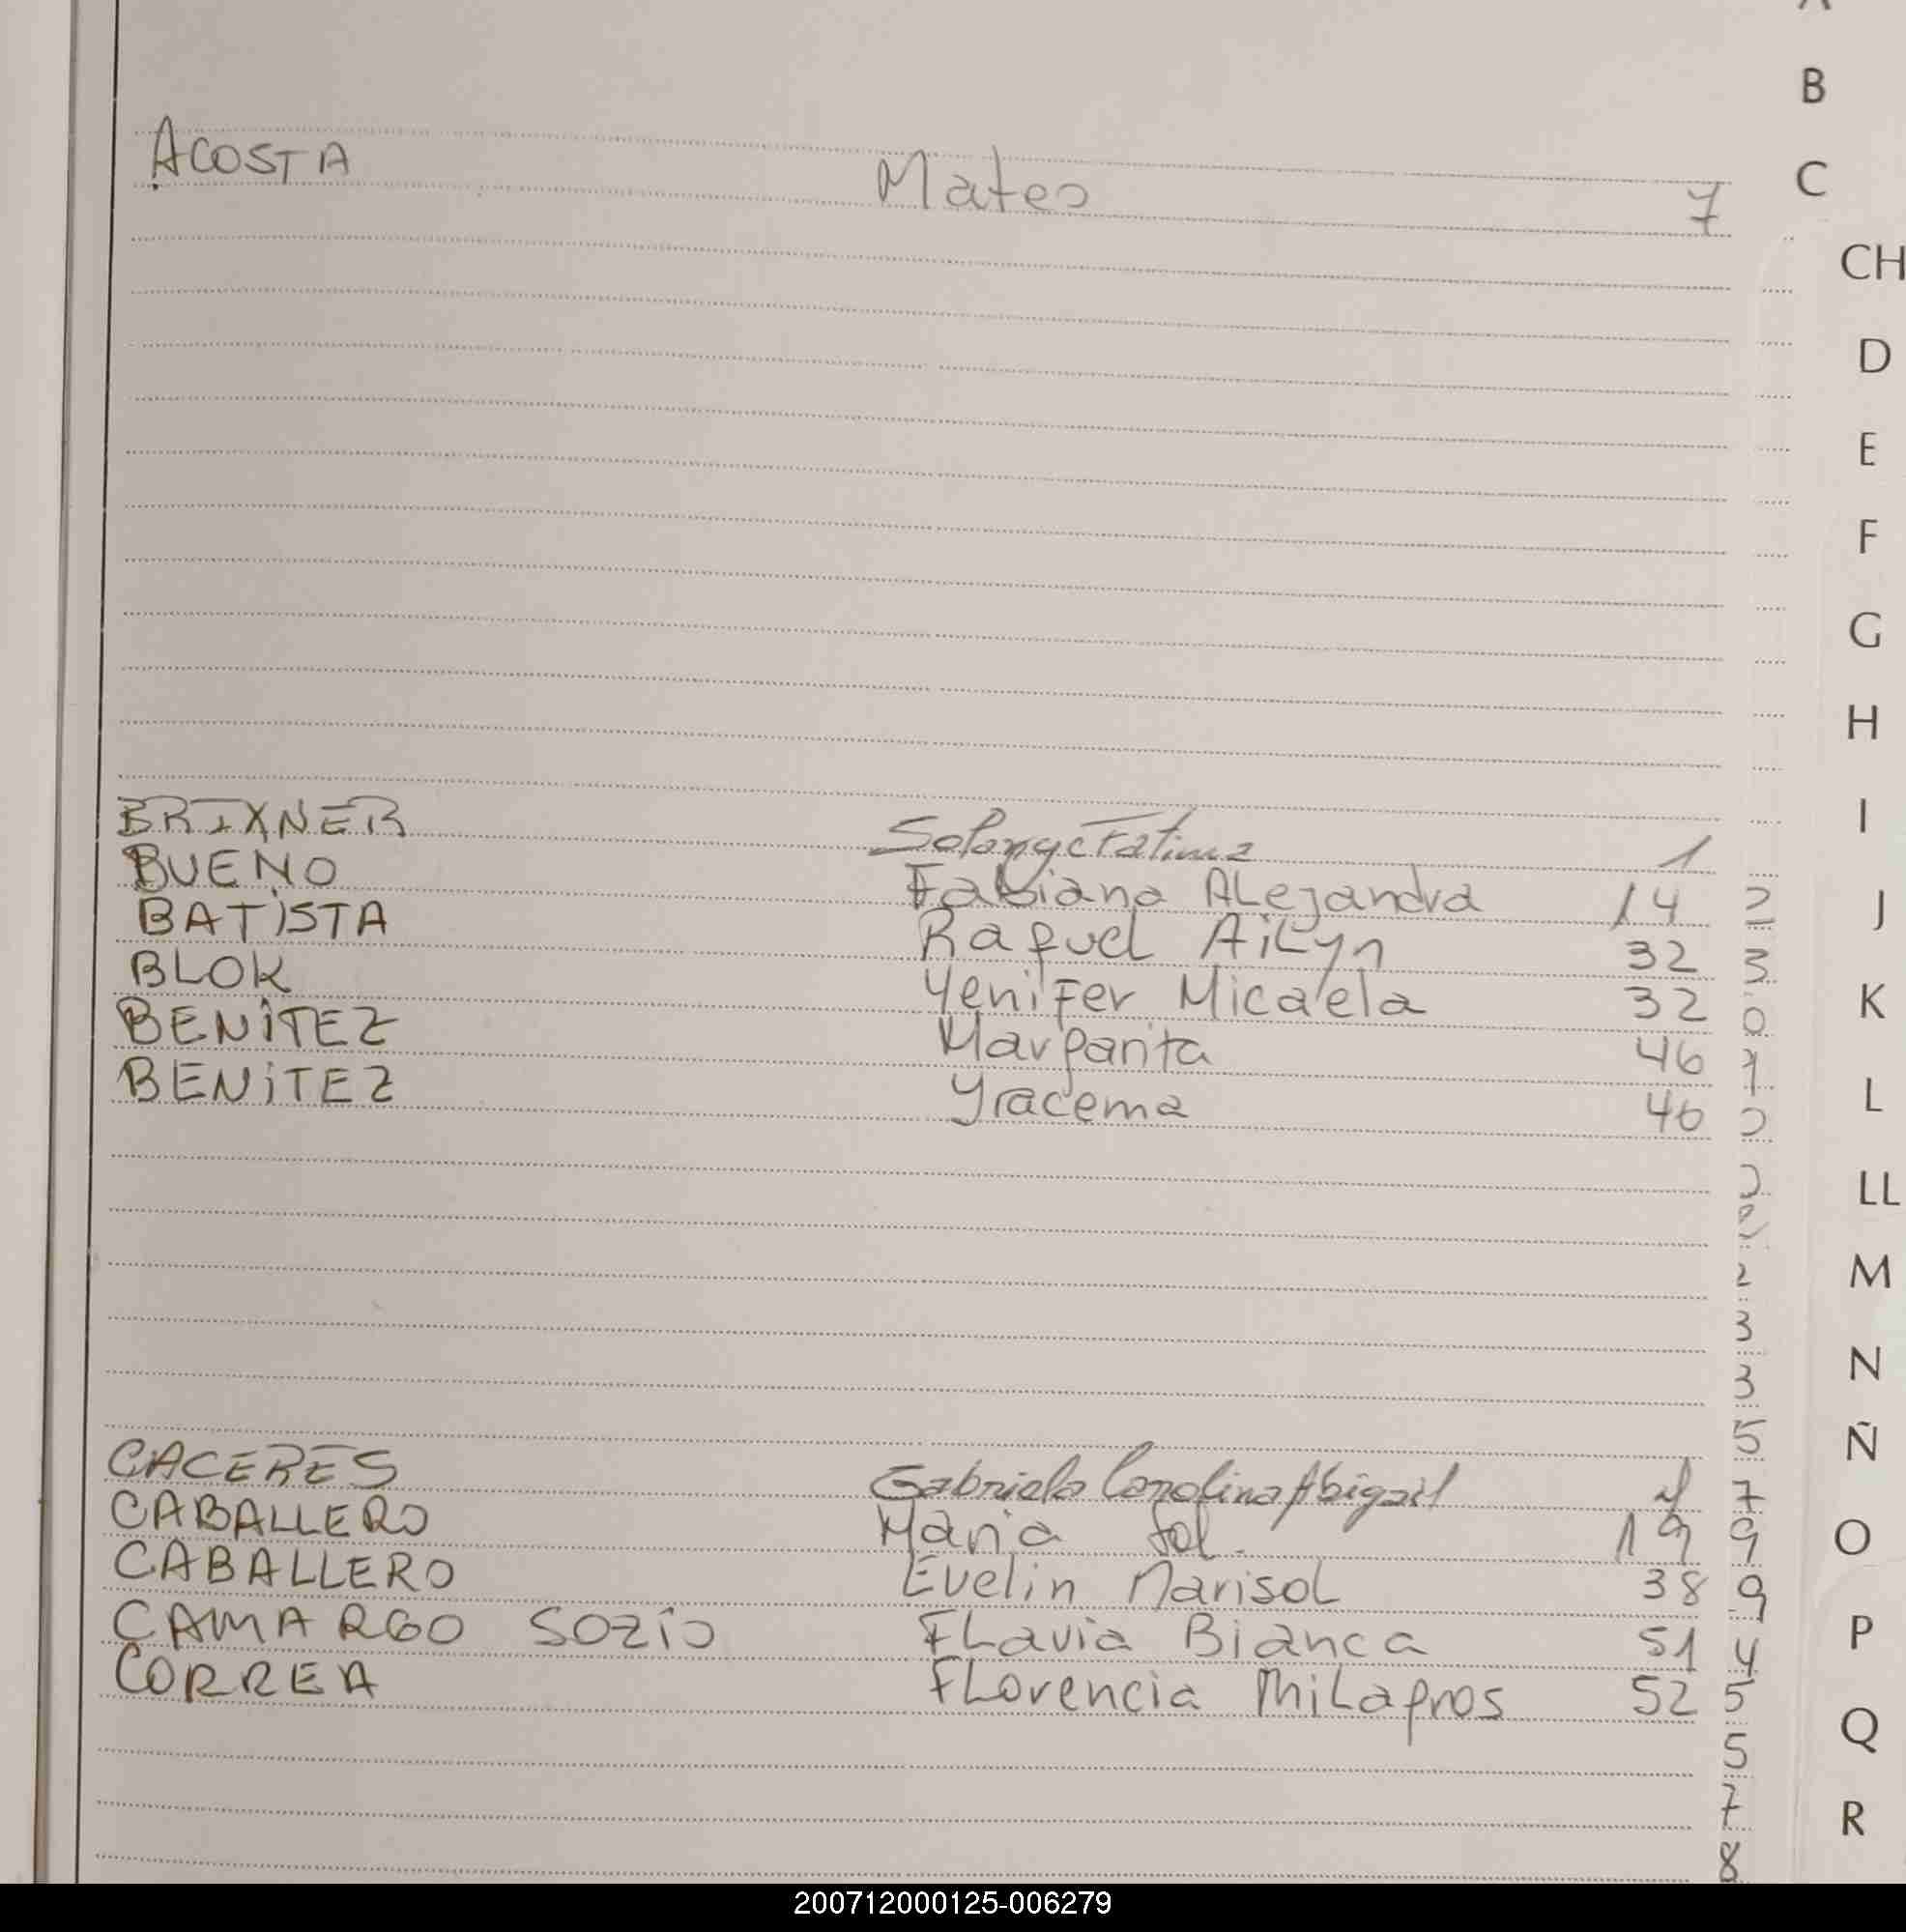 B
C
ACOSTA Mateo 7
CH
D
E
F
G
H
I
BRIXNER Solange Fatima 1
BUENO Fabiana ALejandra 14 2
J
BATiSTA Raquel AiLyn 32 3
BLOK Yenifer Micaela 32 0
K
BENiTEZ Margarita 46 1
BENiTEZ Yracema 46
L
LL
2
M
3
N
3
5
Ñ
CACERES Gabriela Carolina Abigail 7
CABALLERO Maria Sol. 19 9
O
CABALLERO Evelin Marisol 38 9
CAMARGO SOZiO FLavia Bianca 51 4
P
CORREA FLorencia MiLagros 52 5
Q
5
7
R
8
200712000125-006279